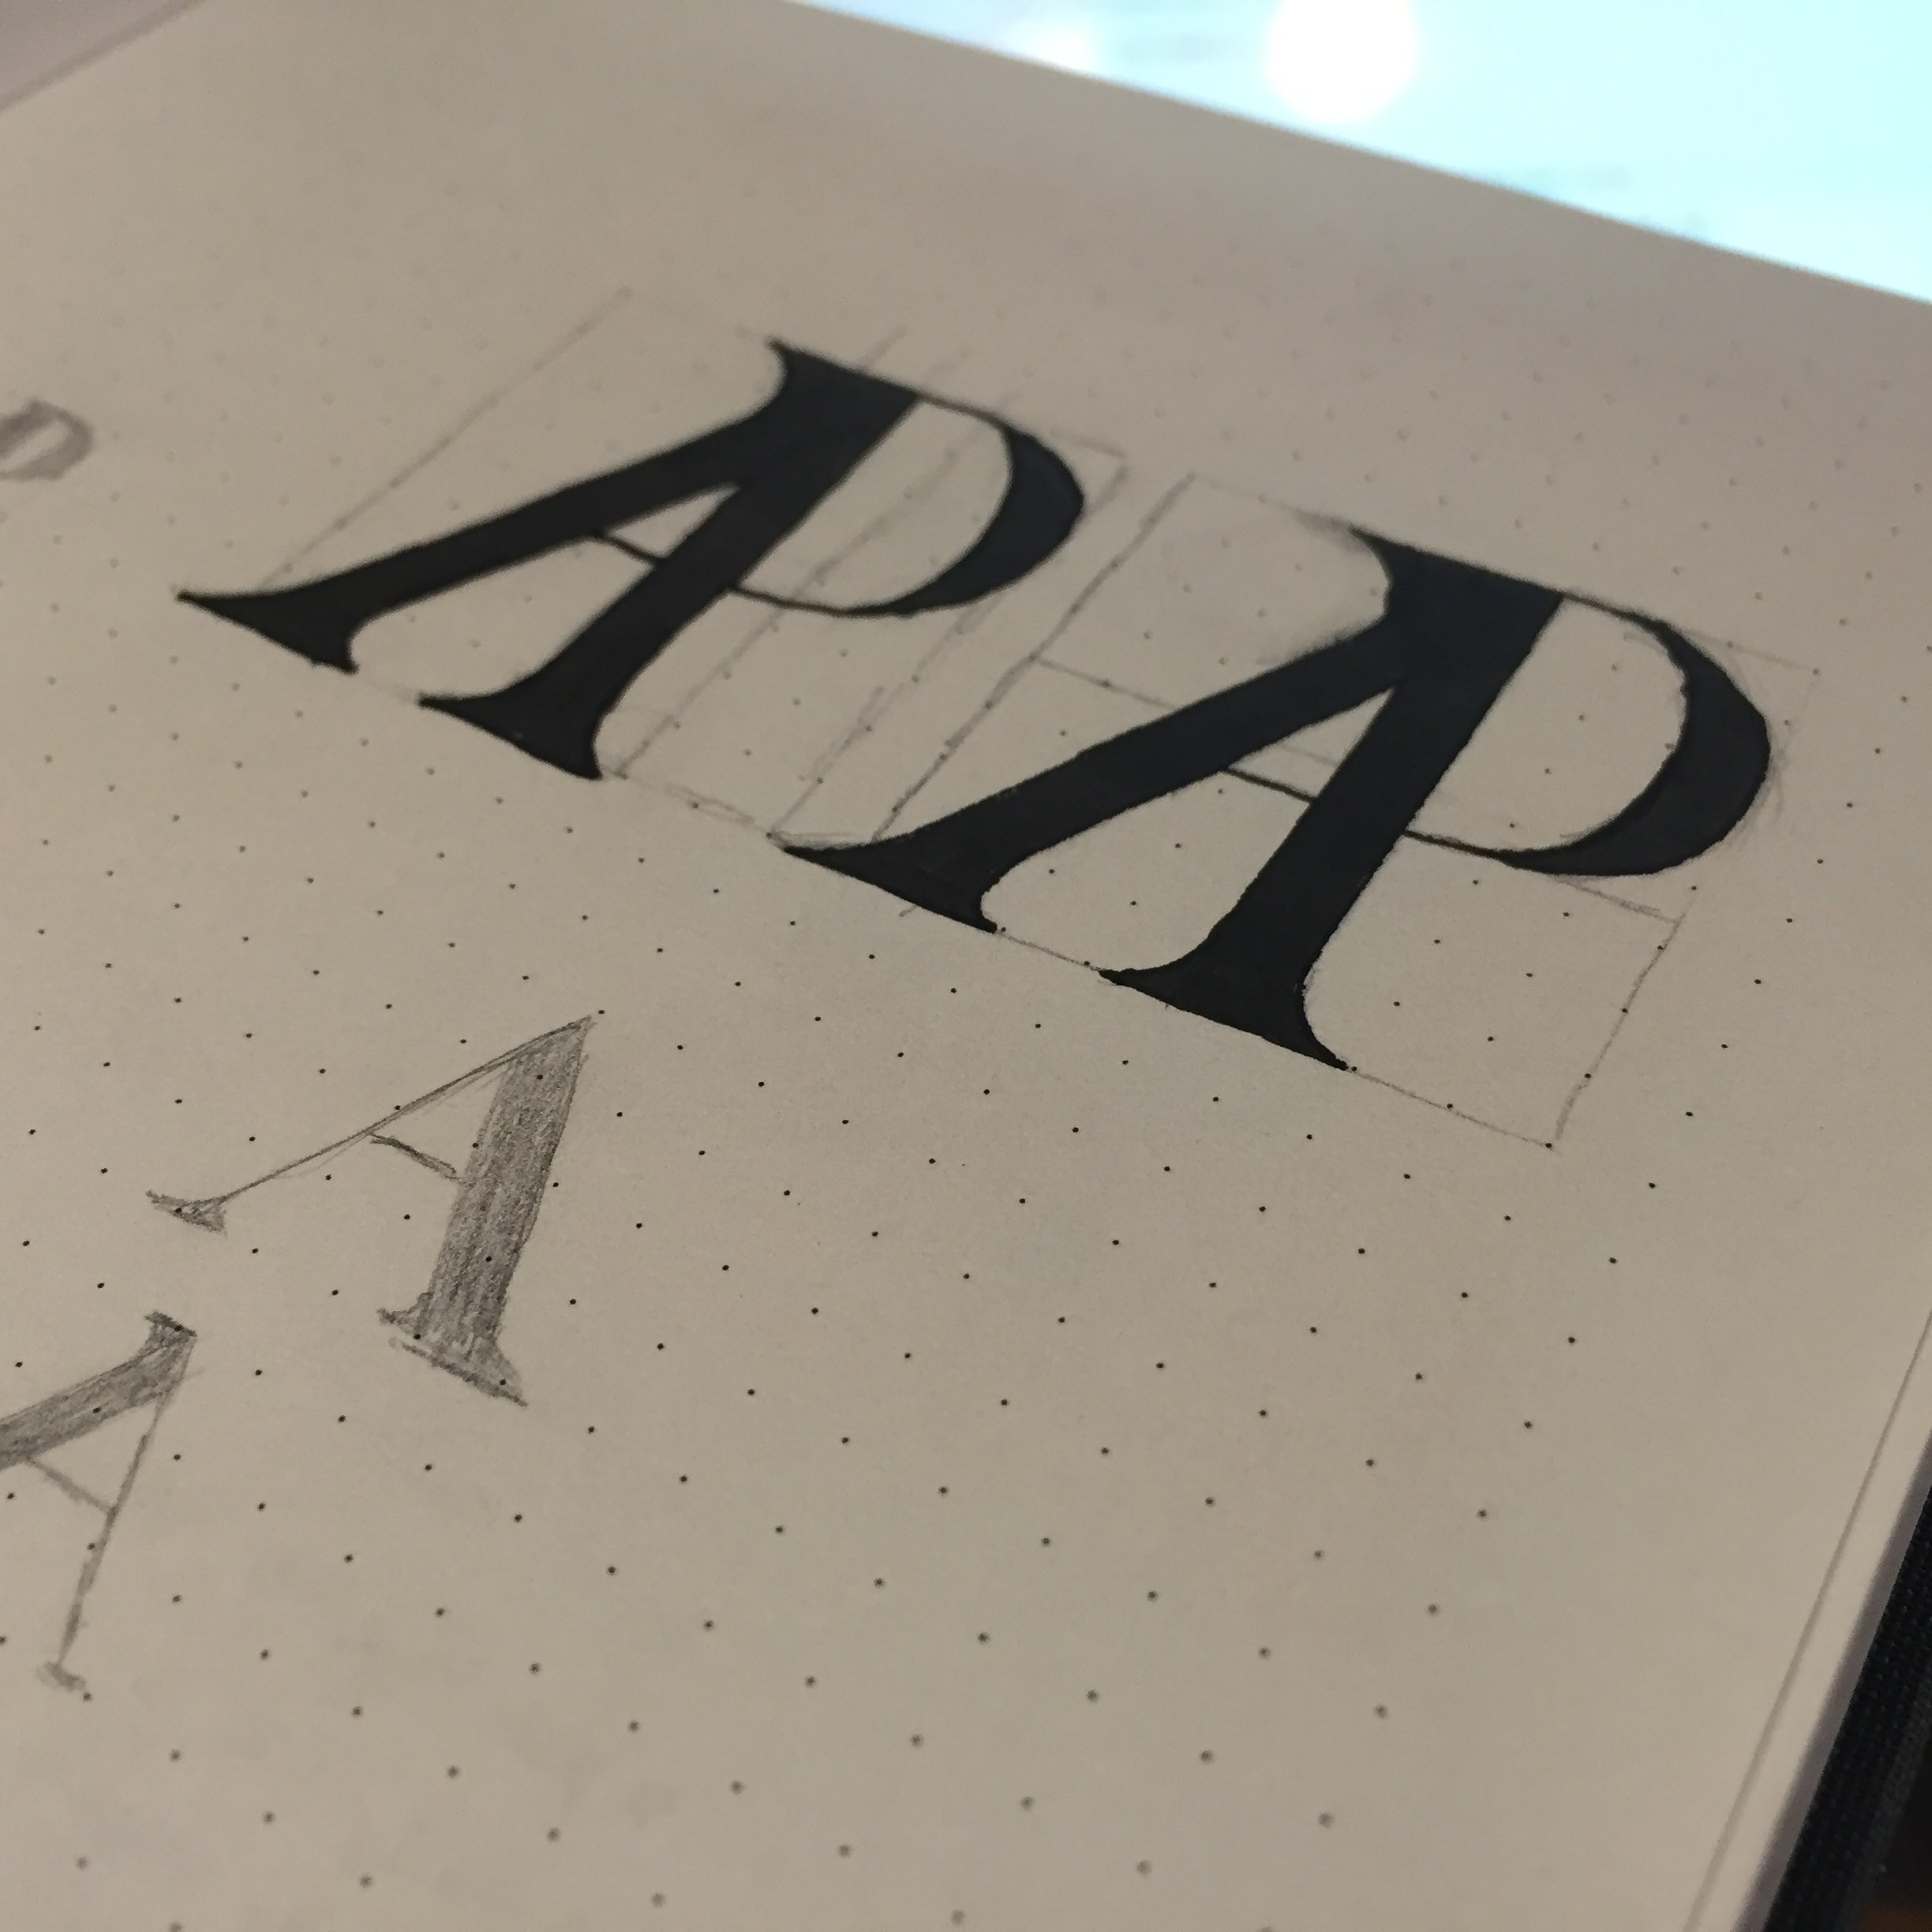 AP AP
A
A